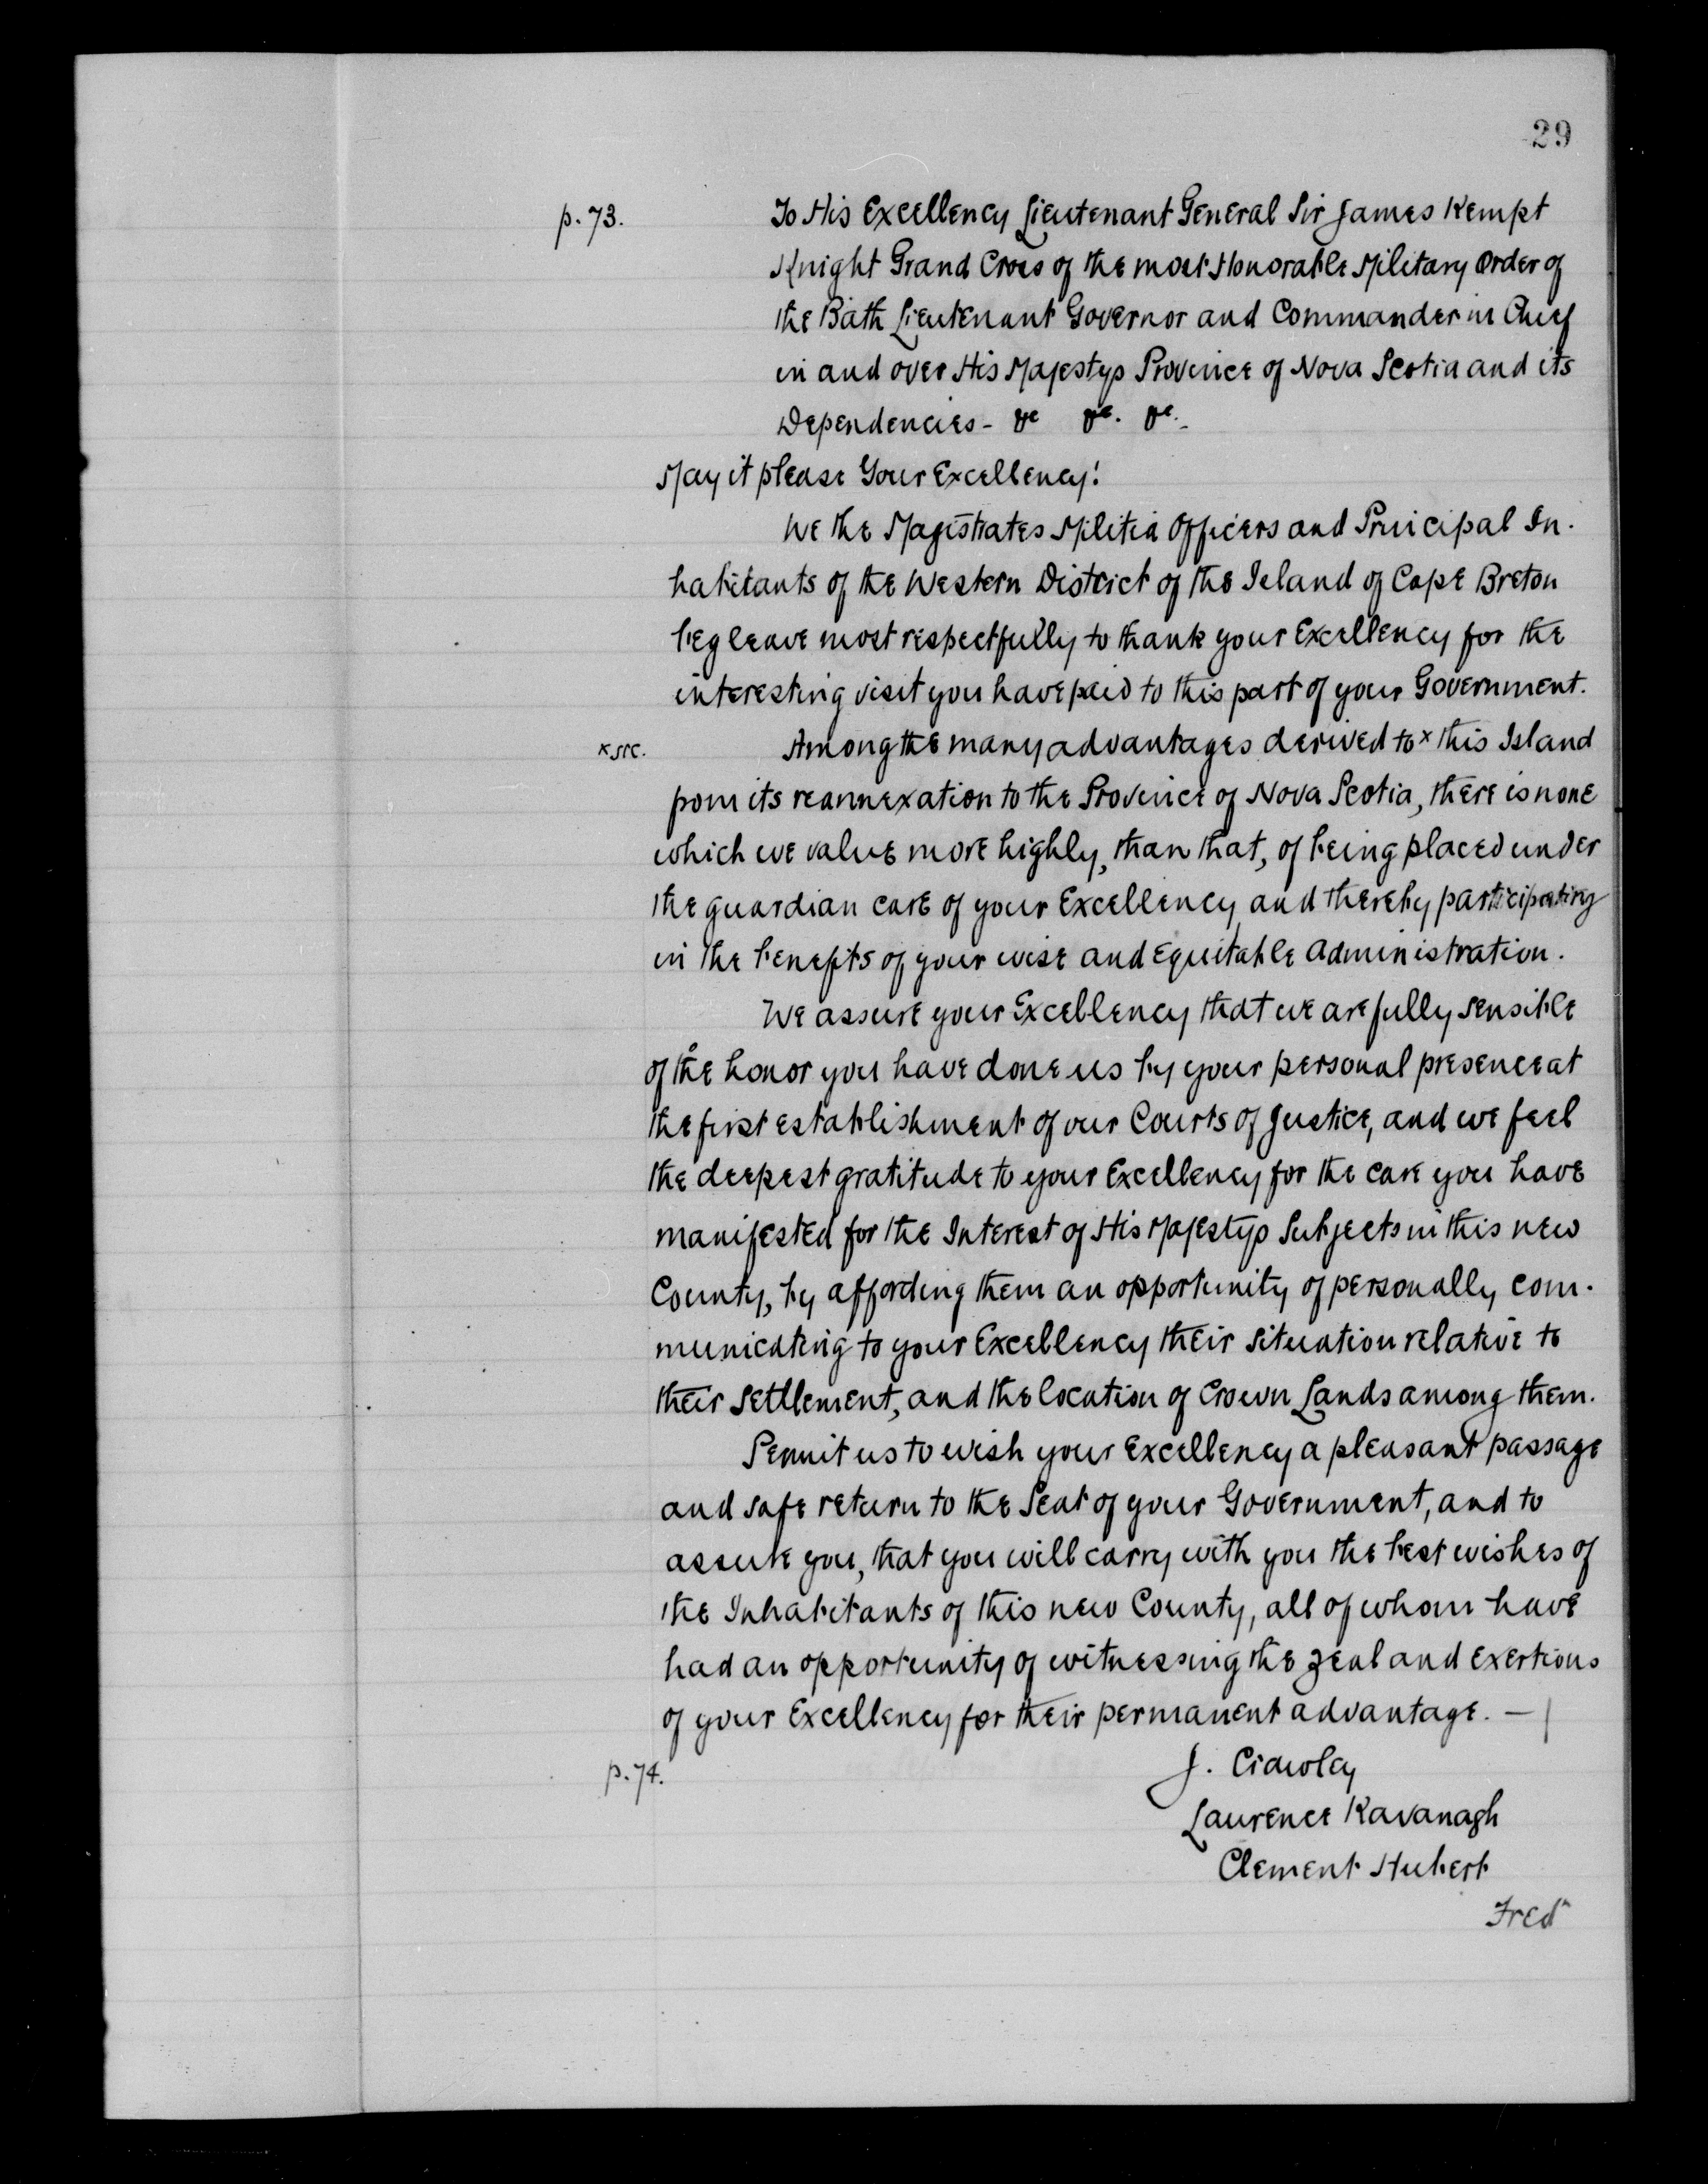 29
p. 73.
To His Excellency Lieutenant General Sir James Kempt
Knight Grand Cross of the most Honorable Military Order of
the Bath Lieutenant Governor and Commander in Chief
in and over His Majestys Province of Nova Scotia and its
Dependencies - &c &c. &c. -
May it please Your Excellency!
We the Magistrates Militia Officers and Principal In-
habitants of the Western District of the Island of Cape Breton
beg leave most respectfully to thank your Excellency for the
interesting visit you have paid to this part of your Government.
x sic.
Among the many advantages derived to x this Island
from its reannexation to the Province of Nova Scotia, there is none
which we value more highly, than that, of being placed under
the guardian care of your Excellency and thereby participating
in the benefits of your wise and equitable administration.
We assure your Excellency that we are fully sensible
of the honor you have done us by your personal presence at
the first establishment of our Courts of Justice, and we feel
the deepest gratitude to your Excellency for the care you have
manifested for the Interest of His Majestys Subjects in this new
County, by affording them an opportunity of personally com-
municating to your Excellency their situation relative to
their settlement, and the location of Crown Lands among them.
Permit us to wish your Excellency a pleasant passage
and safe return to the Seat of your Government, and to
assure you, that you will carry with you the best wishes of
the Inhabitants of this new County, all of whom have
had an opportunity of witnessing the zeal and exertions
of your Excellency for their permanent advantage. —
p. 74.
J. Crawley
Laurence Kavanagh
Clement Hubert
Fred